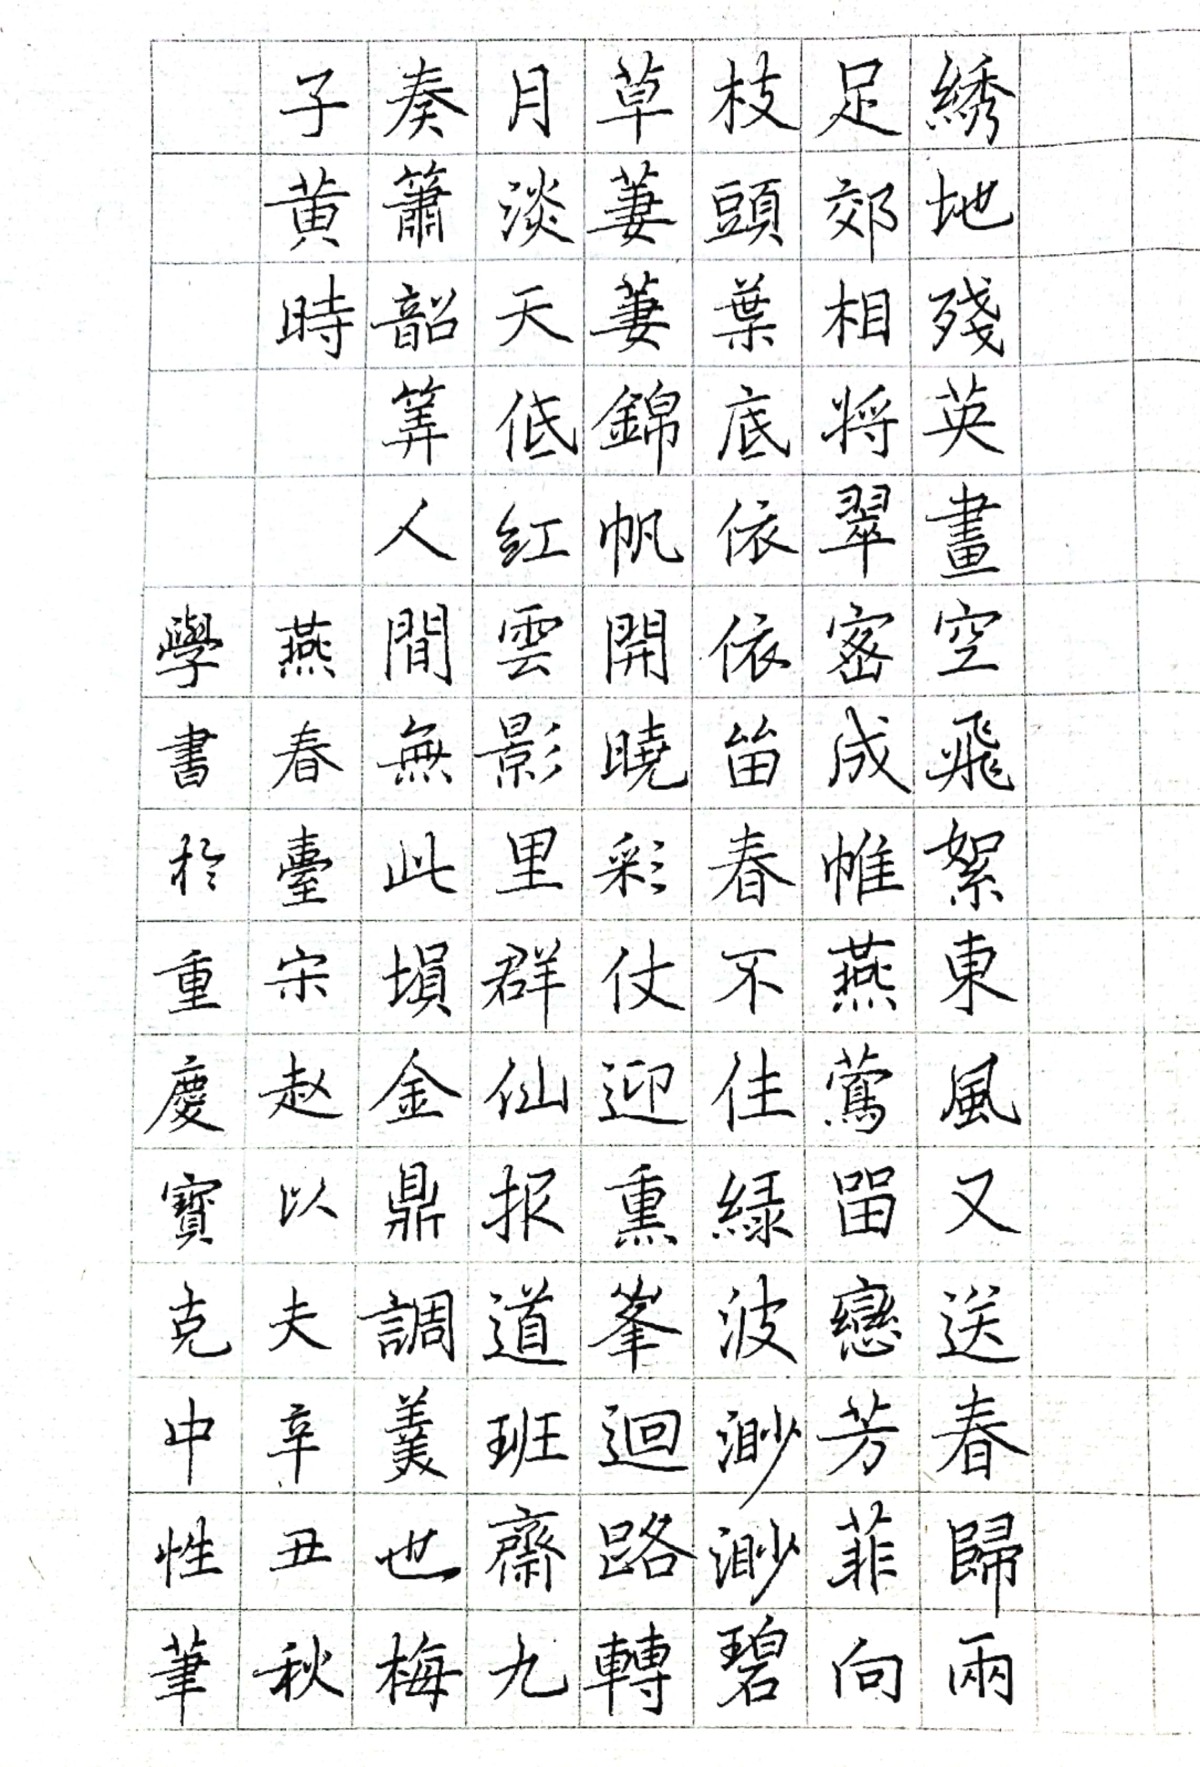 綉地殘英畫空飛絮東風又送春歸兩
足郊相將翠密成帷燕鶯畱戀芳菲向
枝頭葉底依依畱春不住綠波渺渺碧
草萋萋錦帆開曉彩仗迎熏峯迴路轉
月淡天低紅雲影里群仙报道班齋九
奏簫韶筭人間無此塤金鼎調羹也梅
子黄時 燕春臺宋赵以夫辛丑秋
學書於重慶寶克中性筆